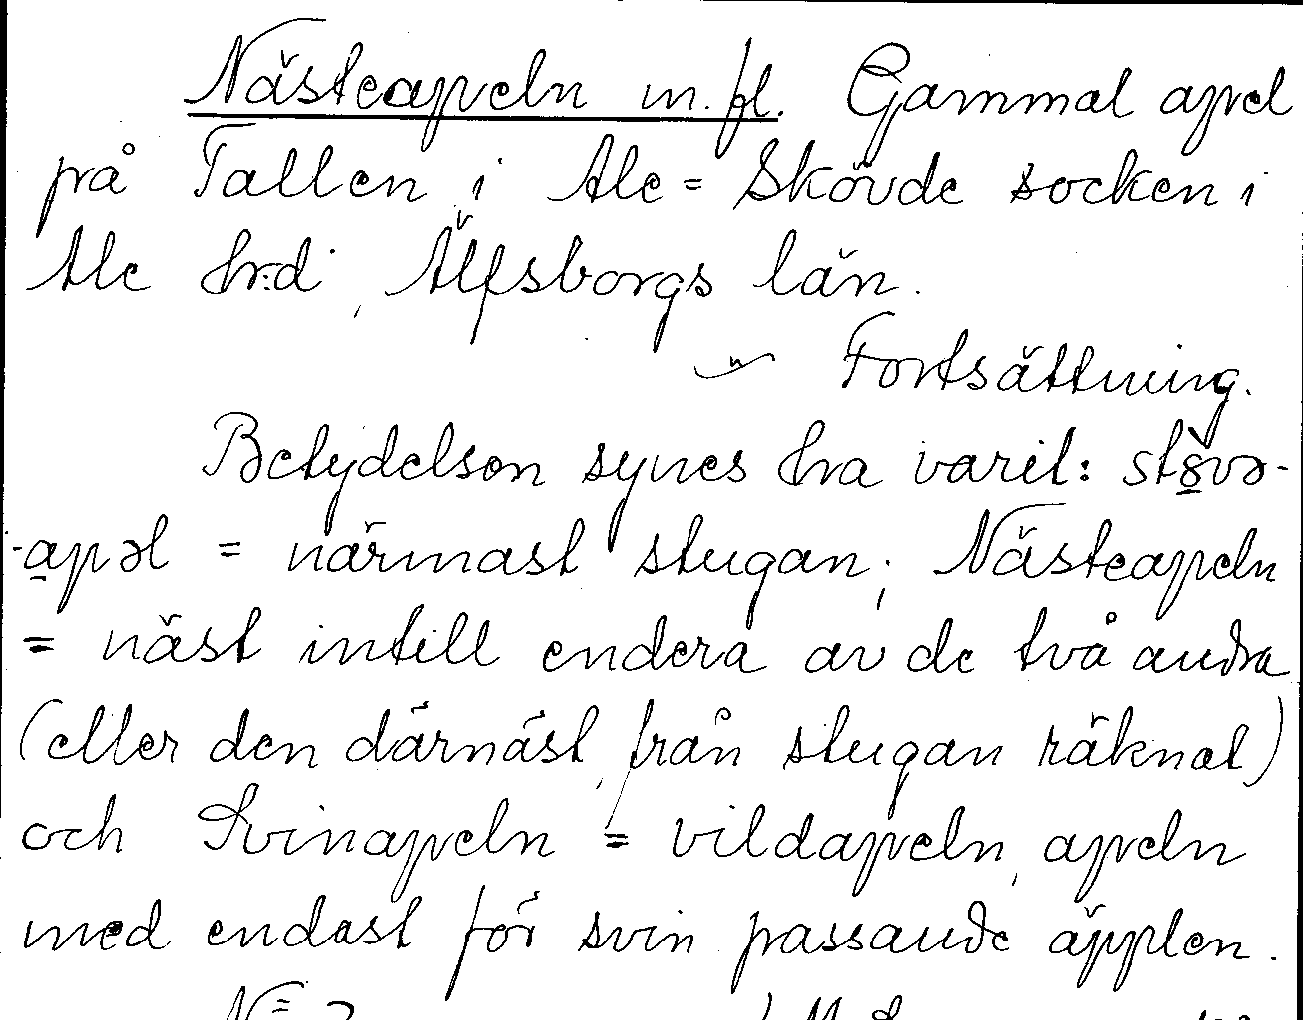 Nästeapeln m.fl. Gammal apel
på Tallen i Ale=Skövde socken i
Ale hrd, Älfsborgs län.
Fortsättning.
Betydelsen synes ha varit: stövə-
-apəl = närmast stugan; Nästeapeln
= näst intill endera av de två andra
(eller den därnäst, från stugan räknat)
och Svinapeln = vildapeln, apeln
med endast för svin passande äpplen.